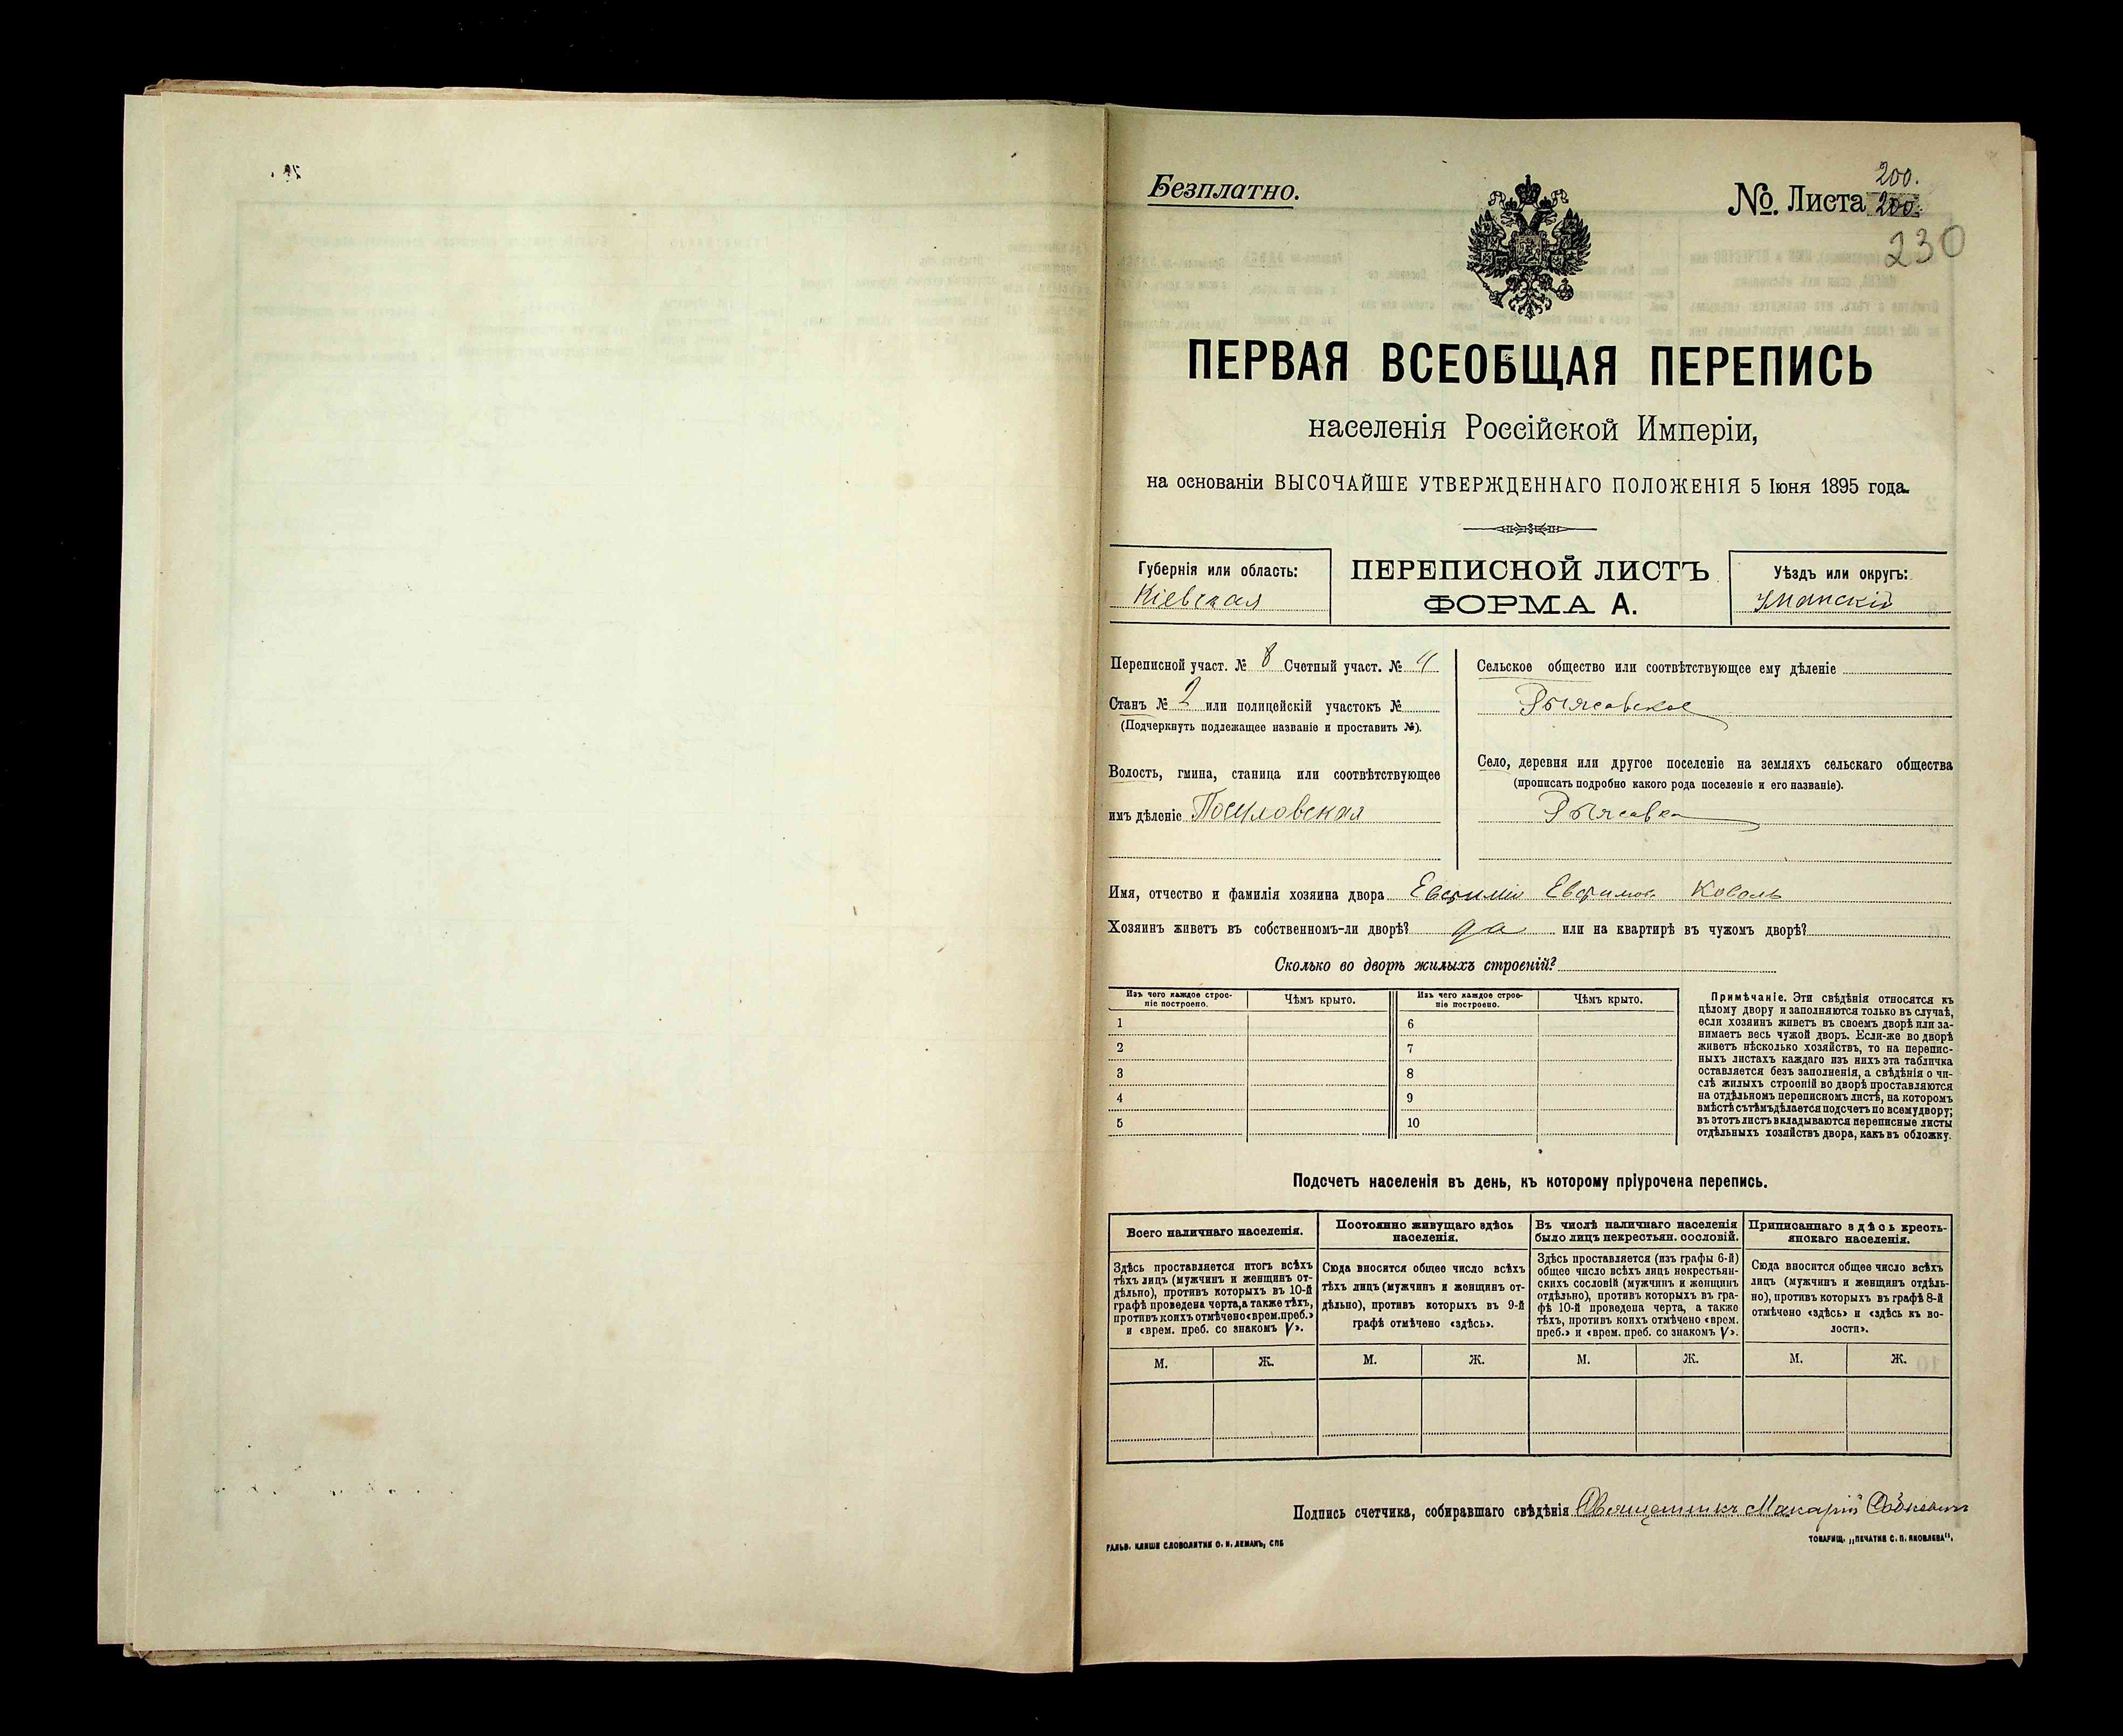 Безплатно.
№. Листа 200.
200.
230
ПЕРВАЯ ВСЕОБЩАЯ ПЕРЕПИСЬ
населенія Россійской Имперіи,
на основаніи ВЫСОЧАЙШЕ УТВЕРЖДЕННАГО ПОЛОЖЕНІЯ 5 Іюня 1895 года.
Губернія или область:
Кіевская
ПЕРЕПИСНОЙ ЛИСТЪ
ФОРМА А.
Уѣздъ или округъ:
Уманскій
Переписной участ. № 8 Счетный участ. № 4
Станъ № 2 или полицейскій участокъ №
(Подчеркнуть подлежащее названіе и проставить №).
Волость, гмина, станица или соотвѣтствующее
имъ дѣленіе
Сельское общество или соотвѣтствующее ему дѣленіе
Рыжавское
Село, деревня или другое поселеніе на земляхъ сельскаго общества
(прописать подробно какого рода поселеніе и его названіе).
Рыжавка
Имя, отчество и фамилія хозяина двора Евфимій Евфимов Коваль
Хозяинъ живетъ въ собственномъ-ли дворѣ? да или на квартирѣ въ чужомъ дворѣ?
Сколько во дворѣ жилыхъ строеній?
Изъ чего каждое строе-
ніе построено.
Чѣмъ крыто.
Изъ чего каждое строе-
ніе построено.
Чѣмъ крыто.
1
6
2
7
3
8
4
9
5
10
Примѣчаніе. Эти свѣдѣнія относятся къ
цѣлому двору и заполняются только въ случаѣ,
если хозяинъ живетъ въ своемъ дворѣ или за-
нимаетъ весь чужой дворъ. Если-же во дворѣ
живетъ нѣсколько хозяйствъ, то на перепис-
ныхъ листахъ каждаго изъ нихъ эта табличка
оставляется безъ заполненія, а свѣдѣнія о чи-
слѣ жилыхъ строеній во дворѣ проставляются
на отдѣльномъ переписномъ листѣ, на которомъ
вмѣстѣ съ тѣмъ дѣлается подсчетъ по всему двору;
въ этотъ листъ вкладываются переписные листы
отдѣльныхъ хозяйствъ двора, какъ въ обложку.
Подсчетъ населенія въ день, къ которому пріурочена перепись.
Всего наличнаго населенія.
Здѣсь проставляется итогъ всѣхъ
тѣхъ лицъ (мужчинъ и женщинъ от-
дѣльно), противъ которыхъ въ 10-й
графѣ проведена черта, а также тѣхъ,
противъ коихъ отмѣчено «врем. преб.»
и «врем. преб. со знакомъ V».
Постоянно живущаго здѣсь
населенія.
Сюда вносится общее число всѣхъ
тѣхъ лицъ (мужчинъ и женщинъ от-
дѣльно), противъ которыхъ въ 9-й
графѣ отмѣчено «здѣсь».
Въ числѣ наличнаго населенія
было лицъ некрестьян. сословій.
Здѣсь проставляется (изъ графы 6-й)
общее число всѣхъ лицъ некрестьян-
скихъ сословій (мужчинъ и женщинъ
отдѣльно), противъ которыхъ въ гра-
фѣ 10-й проведена черта, а также
тѣхъ, противъ коихъ отмѣчено «врем.
преб.» и «врем. преб. со знакомъ V».
Приписаннаго здѣсь кресть-
янскаго населенія.
Сюда вносится общее число всѣхъ
лицъ (мужчинъ и женщинъ отдѣль-
но), противъ которыхъ въ графѣ 8-й
отмѣчено «здѣсь» и «здѣсь къ во-
лости».
М. Ж. М. Ж. М. Ж. М. Ж.
Подпись счетчика, собиравшаго свѣдѣнія Священникъ Макарій
ГАЛЬВ. КЛИШЕ СЛОВОЛИТНИ О. И. ЛЕМАНЪ, СПБ
ТОВАРИЩ. „ПЕЧАТНЯ С. П. ЯКОВЛЕВА".